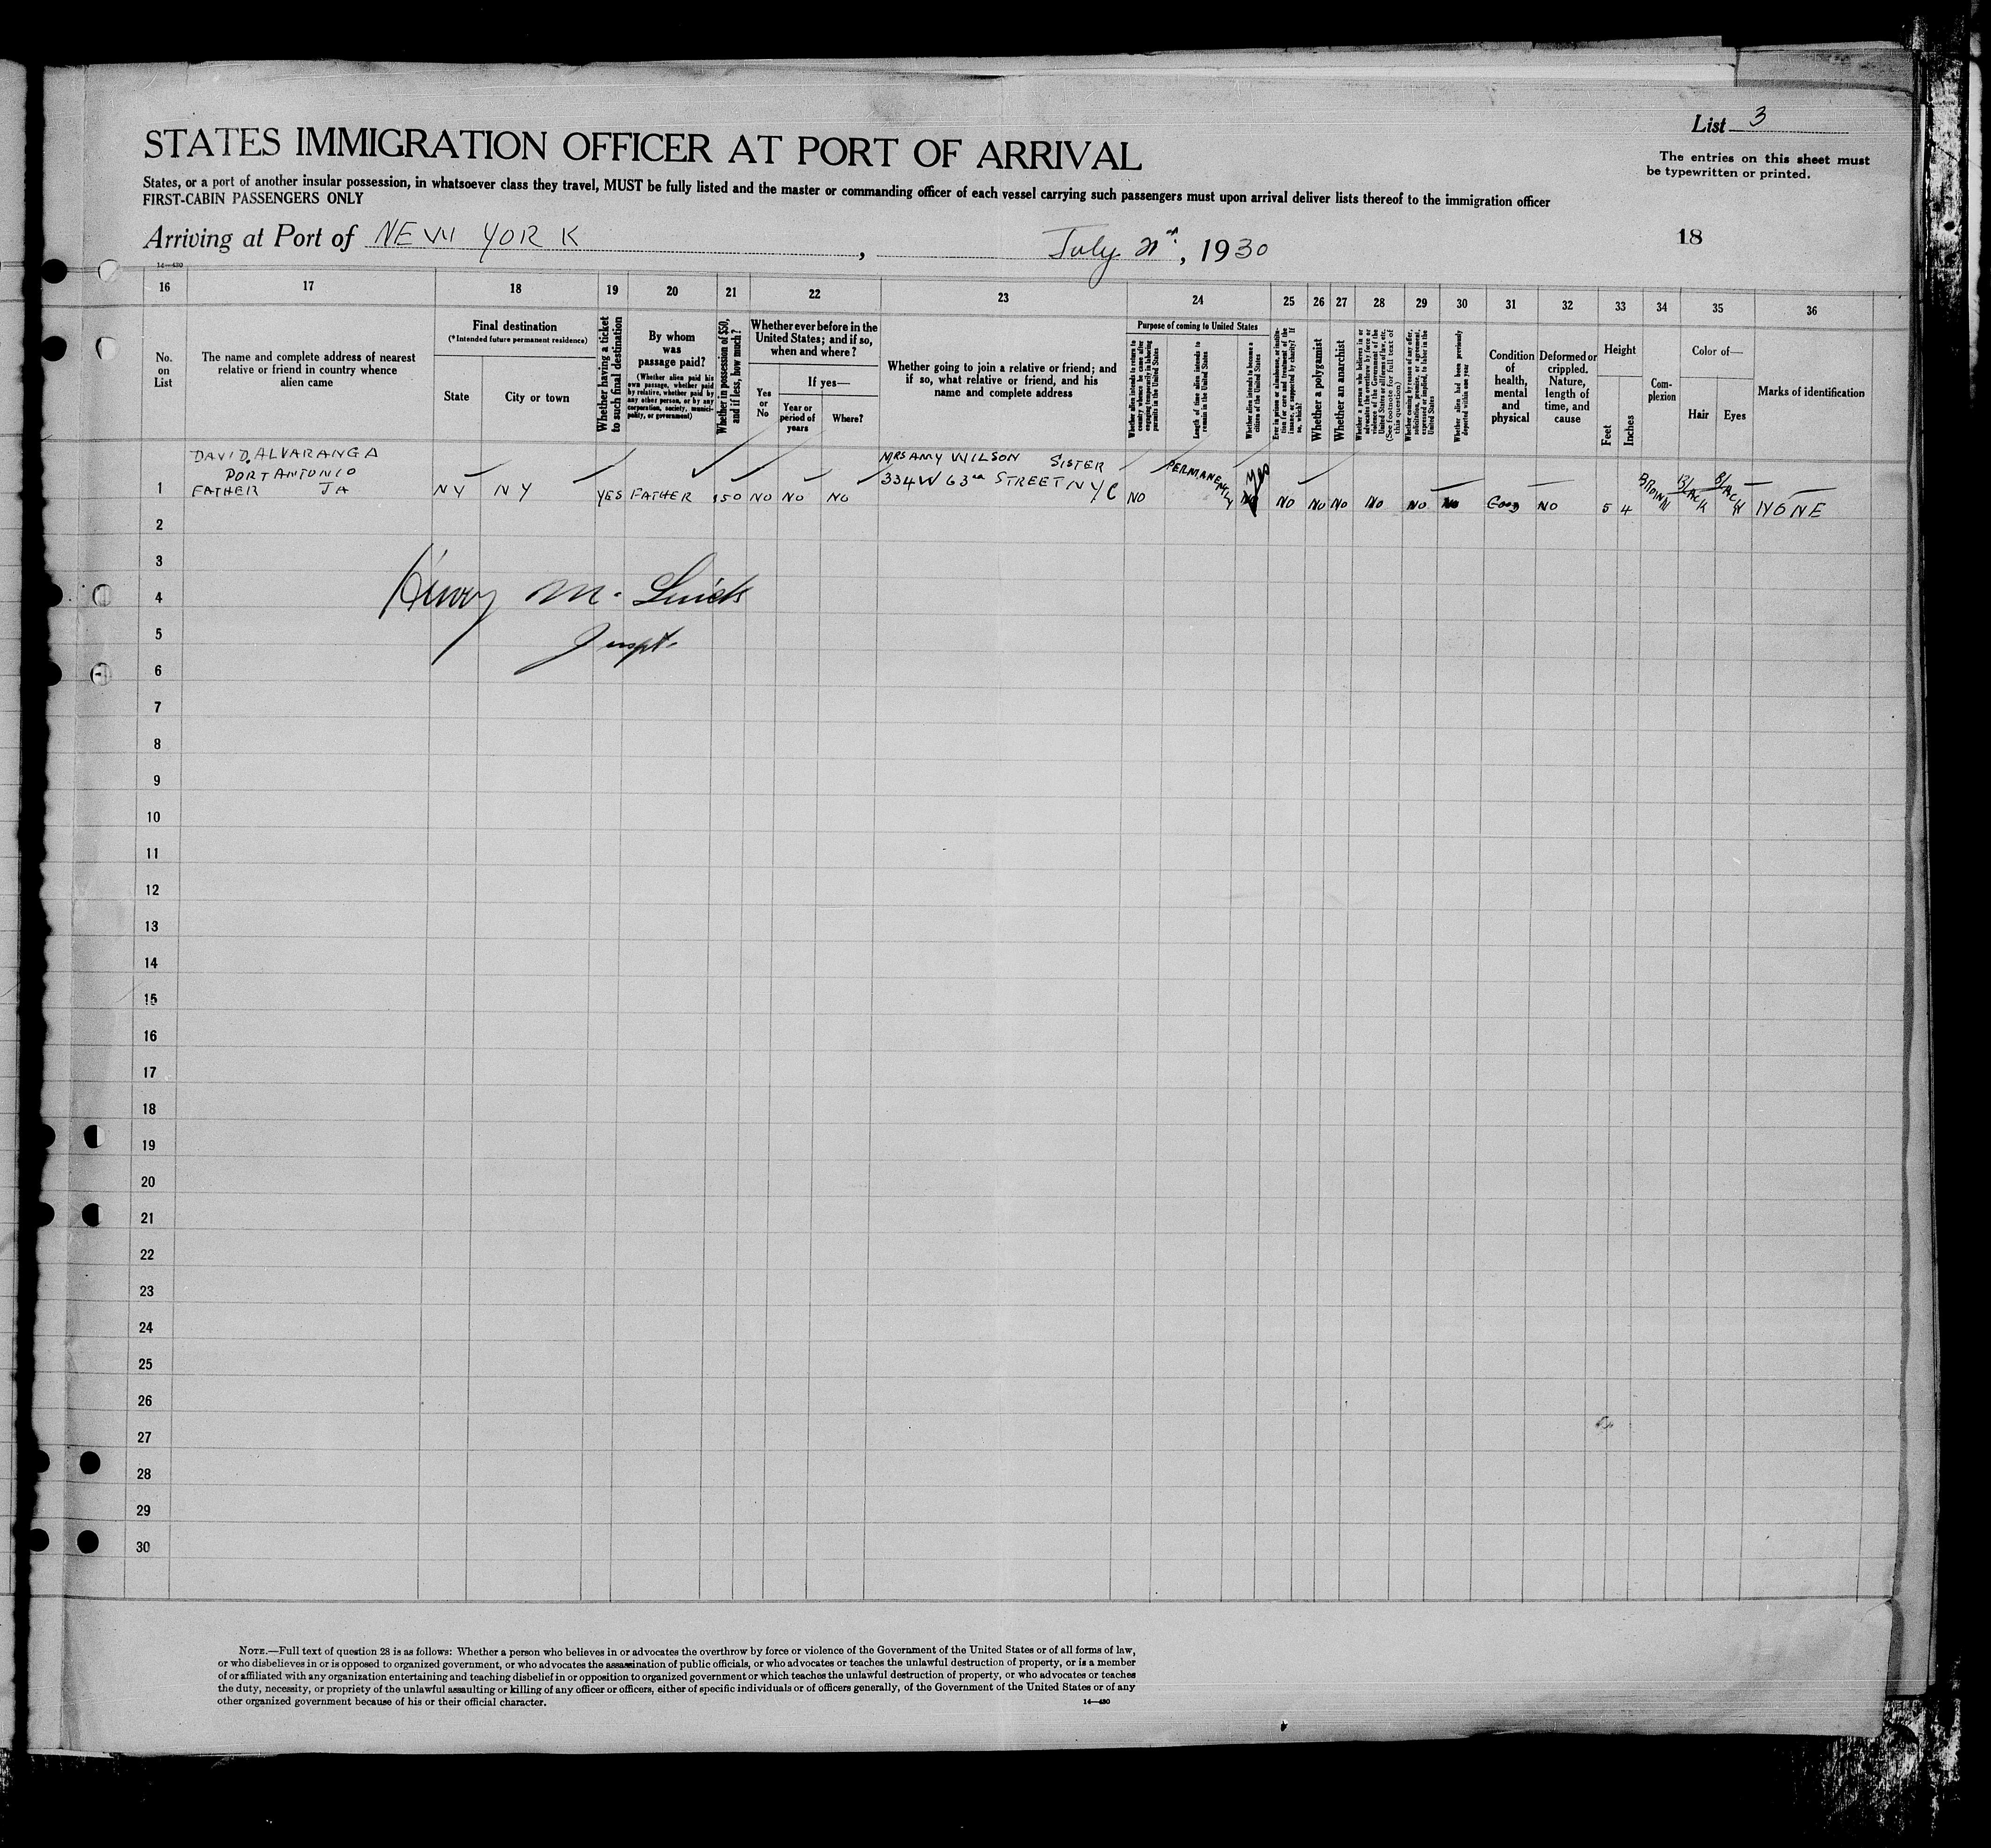 List 3
The entries on this sheet must
be typewritten or printed.
STATES IMMIGRATION OFFICER AT PORT OF ARRIVAL
States, or a port of another insular possession, in whatsoever class they travel, MUST be fully listed and the master or commanding officer of each vessel carrying such passengers must upon arrival deliver lists thereof to the immigration officer
FIRST-CABIN PASSENGERS ONLY
Arriving at Port of NEW YORK , July 21st, 1930
18
14—430
16 17 18 19 20 21 22 23 24 25 26 27 28 29 30 31 32 33 34 35 36
No.
on
List
The name and complete address of nearest
relative or friend in country whence
alien came
Final destination
(*Intended future permanent residence)
State
City or town
Whether having a ticket
to such final destination
By whom
was
passage paid?
(Whether alien paid his
own passage, whether paid
by relative, whether paid by
any other person, or by any
corporation, society, munici-
pality, or government)
Whether in possession of $50,
and if less, how much?
Whether ever before in the
United States; and if so,
when and where?
Yes
or
No
If yes—
Year or
period of
years
Where?
Whether going to join a relative or friend; and
if so, what relative or friend, and his
name and complete address
Purpose of coming to United States
Whether alien intends to return to
country whence he came after
engaging temporarily in laboring
pursuits in the United States
Length of time alien intends to
remain in the United States
Whether alien intends to become a
citizen of the United States
Ever in prison or almshouse, or institu-
tion for care and treatment of the
insane, or supported by charity? If
so, which?
Whether a polygamist
Whether an anarchist
Whether a person who believes in or
advocates the overthrow by force or
violence of the Government of the
United States or all forms of law, etc.
(See footnote for full text of
this question)
Whether coming by reason of any offer,
solicitation, promise, or agreement,
expressed or implied, to labor in the
United States
Whether alien had been previously
deported within one year
Condition
of
health,
mental
and
physical
Deformed or
crippled.
Nature,
length of
time, and
cause
Height
Feet
Inches
Com-
plexion
Color of—
Hair
Eyes
Marks of identification
DAVID. ALVARANGA
PORT ANTONIO
FATHER JA
1 NY NY YES FATHER 150 NO NO NO
MRS AMY WILSON SISTER
334 W 63rd STREET NYC
NO PERMANENTLY Yes NO NO NO NO NO NO Good NO 5 4 BROWN BLACK BLACK NONE
2
3
4
Henry M.
5
Inspt.
6
7
8
9
10
11
12
13
14
15
16
17
18
19
20
21
22
23
24
25
26
27
28
29
30
NOTE.—Full text of question 28 is as follows: Whether a person who believes in or advocates the overthrow by force or violence of the Government of the United States or of all forms of law,
or who disbelieves in or is opposed to organized government, or who advocates the assassination of public officials, or who advocates or teaches the unlawful destruction of property, or is a member
of or affiliated with any organization entertaining and teaching disbelief in or opposition to organized government or which teaches the unlawful destruction of property, or who advocates or teaches
the duty, necessity, or propriety of the unlawful assaulting or killing of any officer or officers, either of specific individuals or of officers generally, of the Government of the United States or of any
other organized government because of his or their official character.
14—430